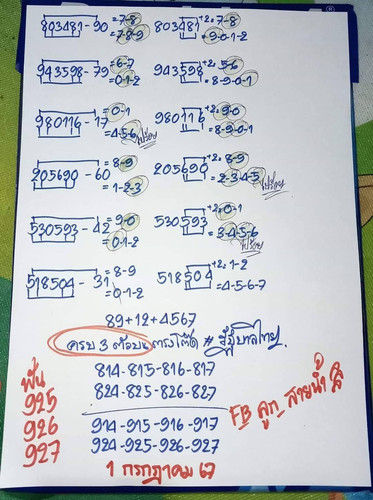 803481-90 =7-8 803481 +2=7-8
=7-8-9 =9-0-1-2
943598-79 =6-7 943598 +2=5-6
=0-1-2 =8-9-0-1
980116-17 =0-1 980116 +2=9-0
=4-5-6 =8-9-0-1
205690-60 =8-9 205690 +2=8-9
=1-2-3 =2-3-4-5
530593-42 =9-0 530593 +2=0-1
=0-1-2 =3-4-5-6
518504-31 =8-9 518504 +2=1-2
=0-1-2 =4-5-6-7
89+12+4567
ครบ 3 ตัวบน
814-815-816-817
824-825-826-827
ฟัน
925
926
927
914-915-916-917
924-925-926-927
FB ลูก สายน้ำ
1 กรกฎาคม 67